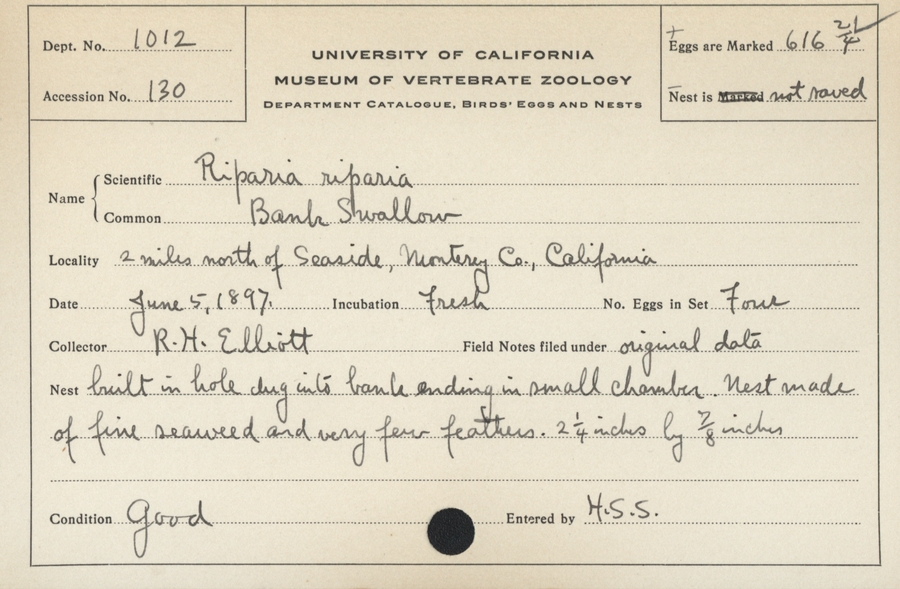 Dept. No. 1012
Accession No. 130
UNIVERSITY OF CALIFORNIA
MUSEUM OF VERTEBRATE ZOOLOGY
DEPARTMENT CATALOGUE, BIRDS' EGGS AND NESTS
Eggs are Marked 616 21/4
Nest is Marked not saved
Name
Scientific Riparia riparia
Common Bank Swallow
Locality 2 miles north of Seaside, Monterey Co., California
Date June 5, 1897. Incubation Fresh No. Eggs in Set Four
Collector R. H. Elliott Field Notes filed under original data
Nest built in hole dug into bank ending in small chamber. Nest made
of fine seaweed and very few feathers. 2 1/4 inches by 7/8 inches
Condition Good Entered by H.S.S.